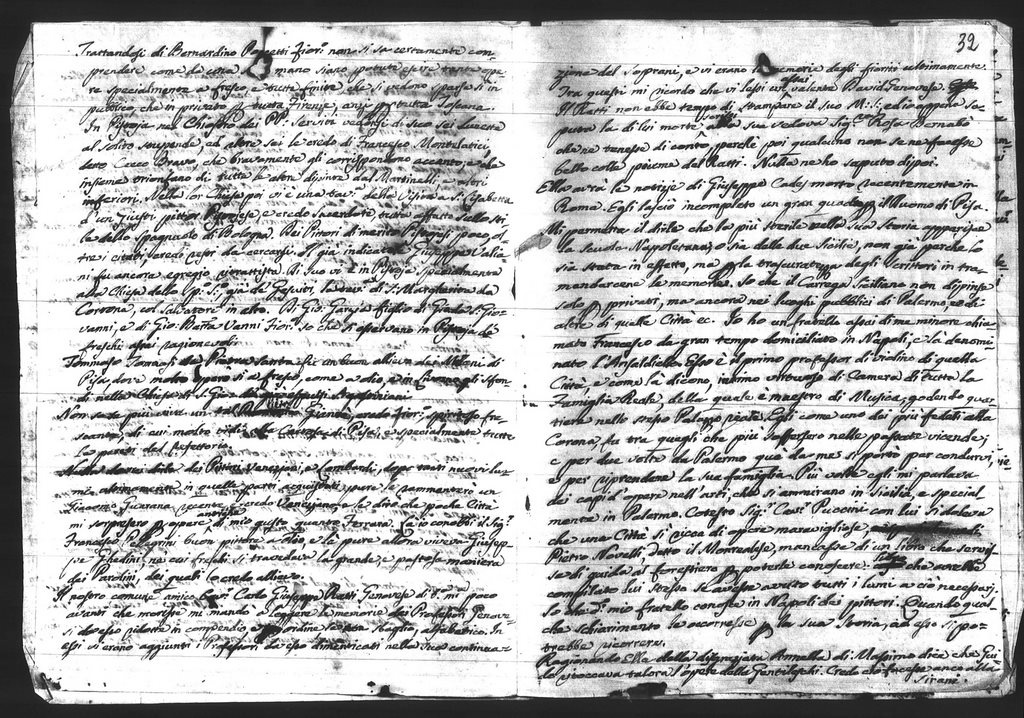 Trattandosi di Bernardino Poccetti Fior.º non si sa certamente com-
prendere come da una mano siano potute escire tante ope-
re specialmente a fresco, e tutte finite che si vedono sparse sì in
pubblico, che in privato p tutta Firenze, anzi p tutta Toscana.
In Pistoja nel Chiostro dei PP: Serviti vedonsi di suo sei lunette
al solito stupende, ed altre sei le credo di Francesco Montelatici
detto Cecco Bravo, che bravamente gli corrispondono accanto, e che
insieme trionfano di tutte le altre dipinte dal Martinelli, e altri
inferiori. Nella lor Chiesa poi vi è una tav.ª della Visita a S. Elisabetta
d'un Giusti pittor Pistojese, e credo sacerdote, tutta affatto sullo sti-
le dello spagnuolo di Bologna. Dei Pittori di merito Pistojesi poco, ol-
tre i citati credo resti da cercarsi. Il già indicato Giuseppe Valia-
ni fu ancora egregio ritrattista. Di suo vi è in Pistoja specialmente
alla Chiesa dello Sp.º S.º, già de Gesuiti, la tav.ª di S. Margherita da
Cortona, col Salvatore in alto. Di Gio. Garzia figlio di Guido S. Gio-
vanni, e di Gio: Batta Vanni Fior.º so che si osservano in Pistoja de
freschi assai ragionevoli.
Tommaso Tommasi da Pietra Santa fu un buon allievo dei Melani di
Pisa dove molto operò sì a fresco, come a olio, e in Livorno gli sfon-
di nella Chiesa di S. Gio:
Non so se più vive un tal Giarrè, credo Fior.º spiritoso fre-
scante, di cui molto vidi alla Certosa di Pisa, e specialmente tutte
le pareti del Refettorio.
Nulla dico dei Pittori Veneziani, e Lombardi, dopo tanti nuovi lu-
mi ultimamente in quelle parti acquistati pure le rammentero un
Giacomo Guarana vecente, credo Veneziano e le dico che poche Città
mi sorpresero p opere di mio gusto quanto Ferrara. Là io conobbi il Sig.ʳ
Francesco Pellegrini buon pittore a olio, e là pure allora viveva Giusep-
pe Ghedini ne cui freschi si travedeva la grande, e pastosa maniera
dei Parolini, dei quali lo credo allievo.
Il nostro comune amico Cav.ʳ Carlo Giuseppe Ratti Genovese di S.ª m.ª poco
avanti che morisse mi mandò a leggere le memorie dei Professori Genove-
si da esso ridotte in compendio, e p ordine se non sbaglio, alfabetico. In
essi vi erano aggiunti i Professori da esso dimenticati nella sua continua-
32
zione del Soprani, e vi erano le memorie degli fioriti ultimamente.
Tra questi mi ricordo che vi lessi assai valente David Genovese.
Il Ratti non ebbe tempo di stampare il suo M:S:, ed io appena sa-
puta la di lui morte scrissi alla sua vedova Sig.ª Rosa Bernabò
che ne tenesse di conto, perchè poi qualcuno non se ne facesse
bello colle piume del Ratti. Nulla ne ho saputo dipoi.
Ella avrà le notizie di Giuseppe Cades morto recentemente in
Roma. Egli lasciò incompleto un gran quadro p il Duomo di Pisa.
Mi permetta il dirle che la più sterile nella sua Storia apparisce
la scuola Napoletana, o sia delle due Sicilie, non già perchè lo
sia stata in effetto, ma p la trascuratezza degli Scrittori in tra-
mandarcene le memorie. So che il Carrega Siciliano non dipinse
solo p privati, ma ancora nei luoghi pubblici di Palermo, e di
altre di quelle Città ec. Io ho un fratello assai di me minore chia-
mato Francesco da gran tempo domiciliato in Napoli, e là denomi-
nato l'Ansaldi. Esso è il primo professor di violino di quella
Città, e come là dicono, intimo Virtuoso di Camera di tutta la
Famiglia Reale, della quale è maestro di Musica, godendo quar-
tiere nello stesso Palazzo reale. Egli come uno dei più fedeli alla
Corona, fu tra quegli che più soffersero nelle passate vicende;
e per due volte da Palermo qua da me si portò per condurvi,
e per riprendere la sua famiglia. Più volte egli mi parlava
dei capi d'opere nell'arti, che si ammirano in Sicilia, e special-
mente in Palermo. Cotesto Sig.ʳ Cav.ʳ Puccini con lui si doleva
che una Città sì ricca di opere maravigliose, di
Pietro Novelli detto il Monrealese, mancasse di un libro che servis-
se di guida al forestiero p poterle conoscere: che avrebbe
compilato lui stesso se avesse avuto tutti i lumi a ciò necessarj.
So che d.º mio fratello conosce in Napoli dei pittori. Quando qual-
che schiarimento le occorresse p la sua Storia, ad esso si po-
trebbe ricorrere.
Ragionando Ella della disgraziata Annella di Massimo dice che Gui-
do ritoccava talora l'opere della Gentileschi. Credo che facesse anco alla
Sirani.